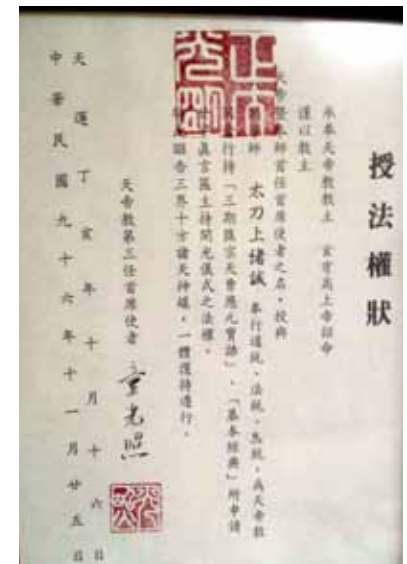 授法權狀
永奉天帝教教主 玄穹高上帝詔命
謹以教主
天帝暨本師首任首席使者之名,授與
師 太刀上緒誠 奉行道統、法統、炁統,為天帝教
行持「三期匯宗天曹應元寶誥」、「基本經典」所申請
真言匾主持開光儀式之法權。
昭告三界十方諸天神媒,一體護持遵行。
天帝教第三任首席使者 童光照
天運丁亥年十月十六日
中華民國九十六年十一月廿五日